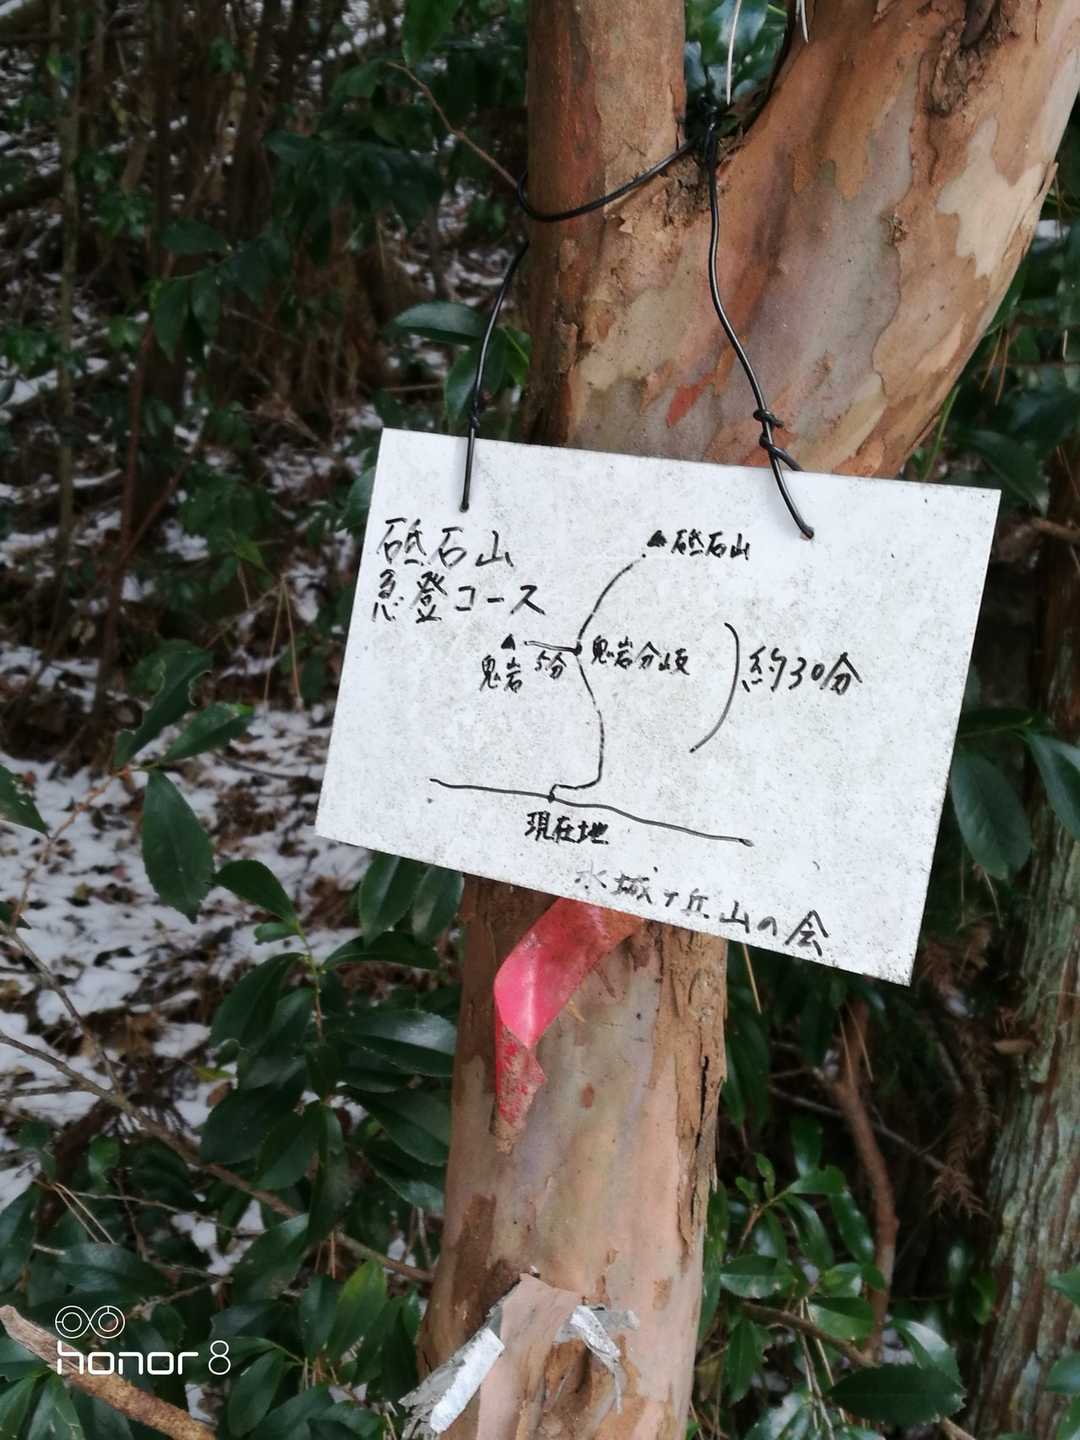 砥石山
急登コース
砥石山
鬼岩分岐
5分
鬼岩
約30分
現在地
水城ヶ丘山の会
honor 8